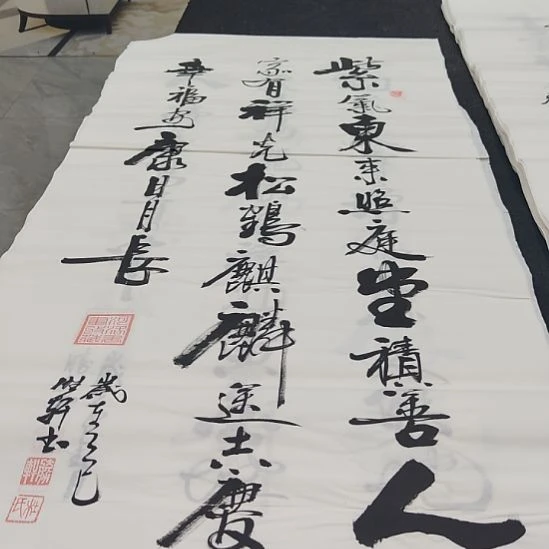 紫氣東来照庭堂積善人
家有祥光松鶴麒麟送吉慶
幸福安康日月長
歲在乙巳
書